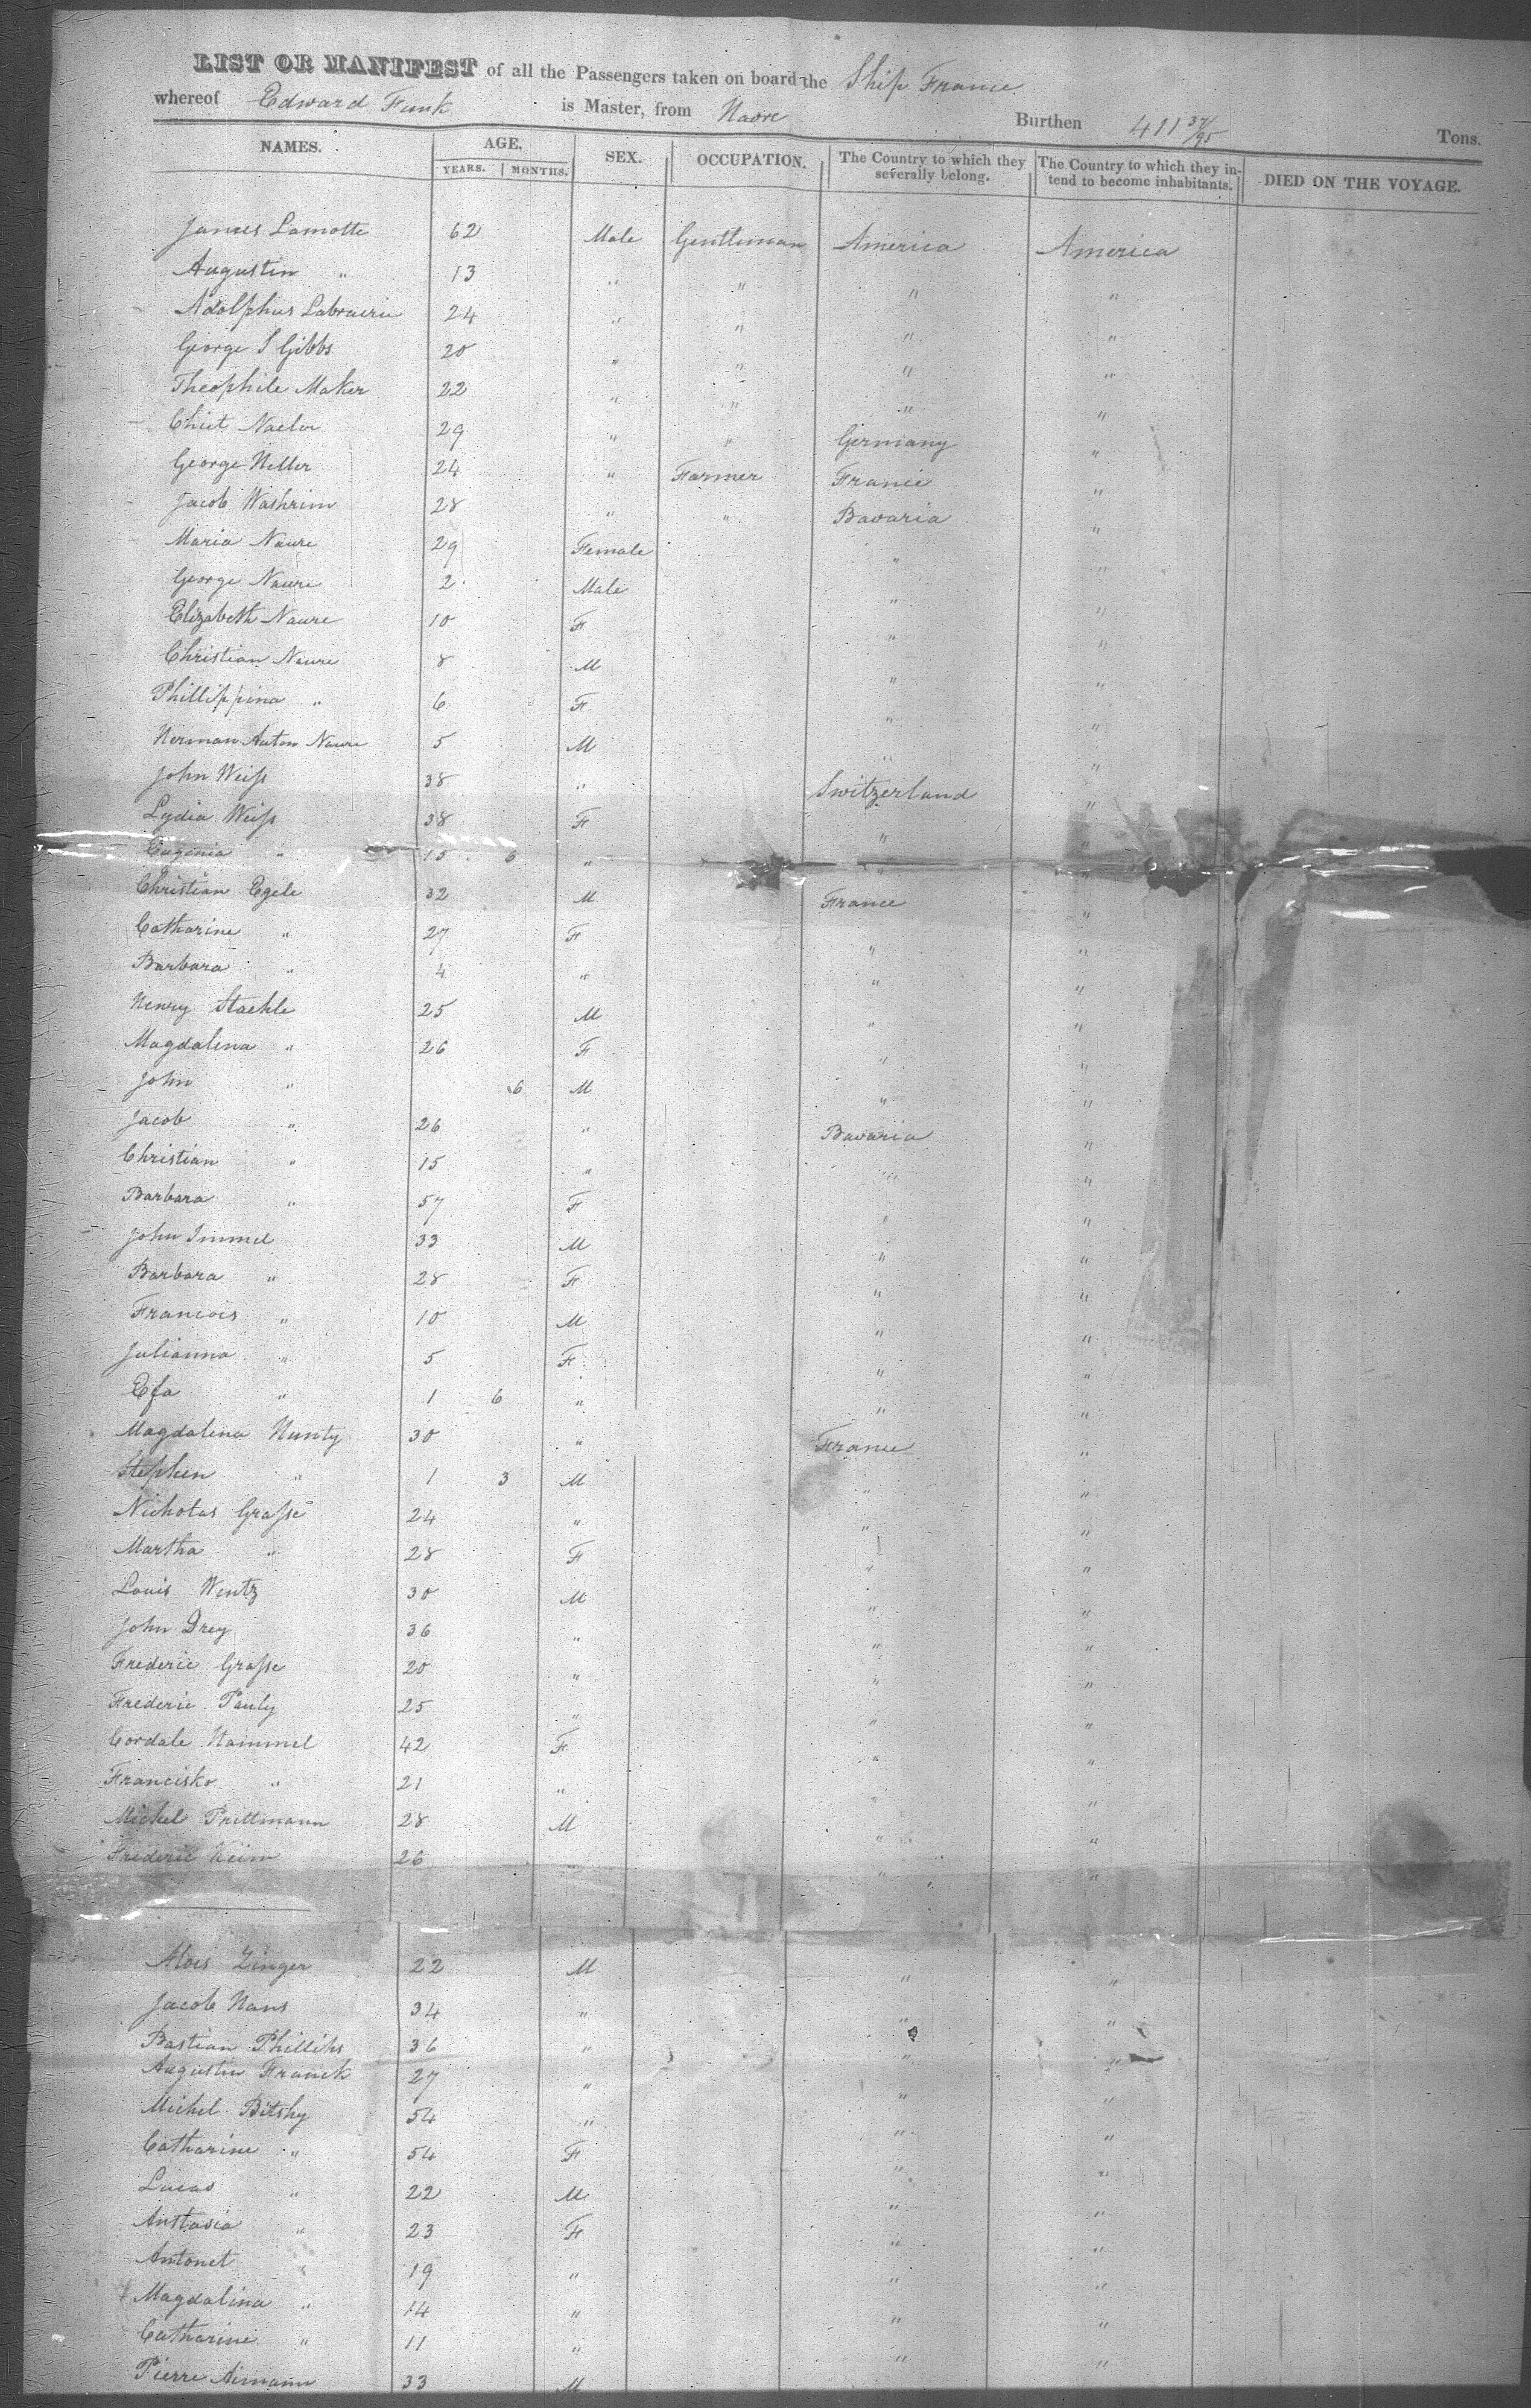 LIST OR MANIFEST of all the Passengers taken on board the Ship France
whereof Edward Funk is Master, from Havre Burthen 411 37/95 Tons.
NAMES. AGE. SEX. OCCUPATION. The Country to which they severally belong. The Country to which they intend to become inhabitants. DIED ON THE VOYAGE.
YEARS. MONTHS.
James Lamotte 62 Male Gentleman America America
Augustin " 13 " " " "
Adolphus 24 " " " "
George S Gibbs 20 " " " "
Theophile Maker 22 " " " "
29 " " Germany "
George Heller 24 " Farmer France "
Jacob Washrim 28 " " Bavaria "
Maria Naure 29 Female " "
George Naure 2 Male " "
Elizabeth Naure 10 F " "
Christian Naure 8 M " "
Phillippina " 6 F " "
Herman Anton Naure 5 M " "
John Weiss 38 " Switzerland "
Lydia Weiss 38 F " "
Eugenia " 15 6 " " "
Christian Egele 32 M France "
Catharine " 27 F " "
Barbara " 4 " " "
Henry Staehle 25 M " "
Magdalena " 26 F " "
John " 6 M " "
Jacob " 26 " Bavaria "
Christian " 15 " " "
Barbara " 57 F " "
John Immel 33 M " "
Barbara " 28 F " "
Francois " 10 M " "
Julianna " 5 F " "
Efa " 1 6 " " "
Magdalena Hunty 30 " France "
Stephen " 1 3 M " "
Nicholas Grasse 24 " " "
Martha " 28 F " "
Louis Wentz 30 M " "
John Drey 36 " " "
Frederic Grasse 20 " " "
Frederic Pauly 25 " " "
Cordale Hammel 42 F " "
Francisko " 21 " " "
Michel Prillmann 28 M " "
Frederic Keim 26 " " "
Alois Zinger 22 M " "
Jacob Hans 34 " " "
Bastian Phillips 36 " " "
Augustin Franck 27 " " "
Michel Bitshy 54 " " "
Catharine " 54 F " "
Lucas " 22 M " "
Anstasia " 23 F " "
Antonet " 19 " " "
Magdalina " 14 " " "
Catharine " 11 " " "
Pierre Aimann 33 M